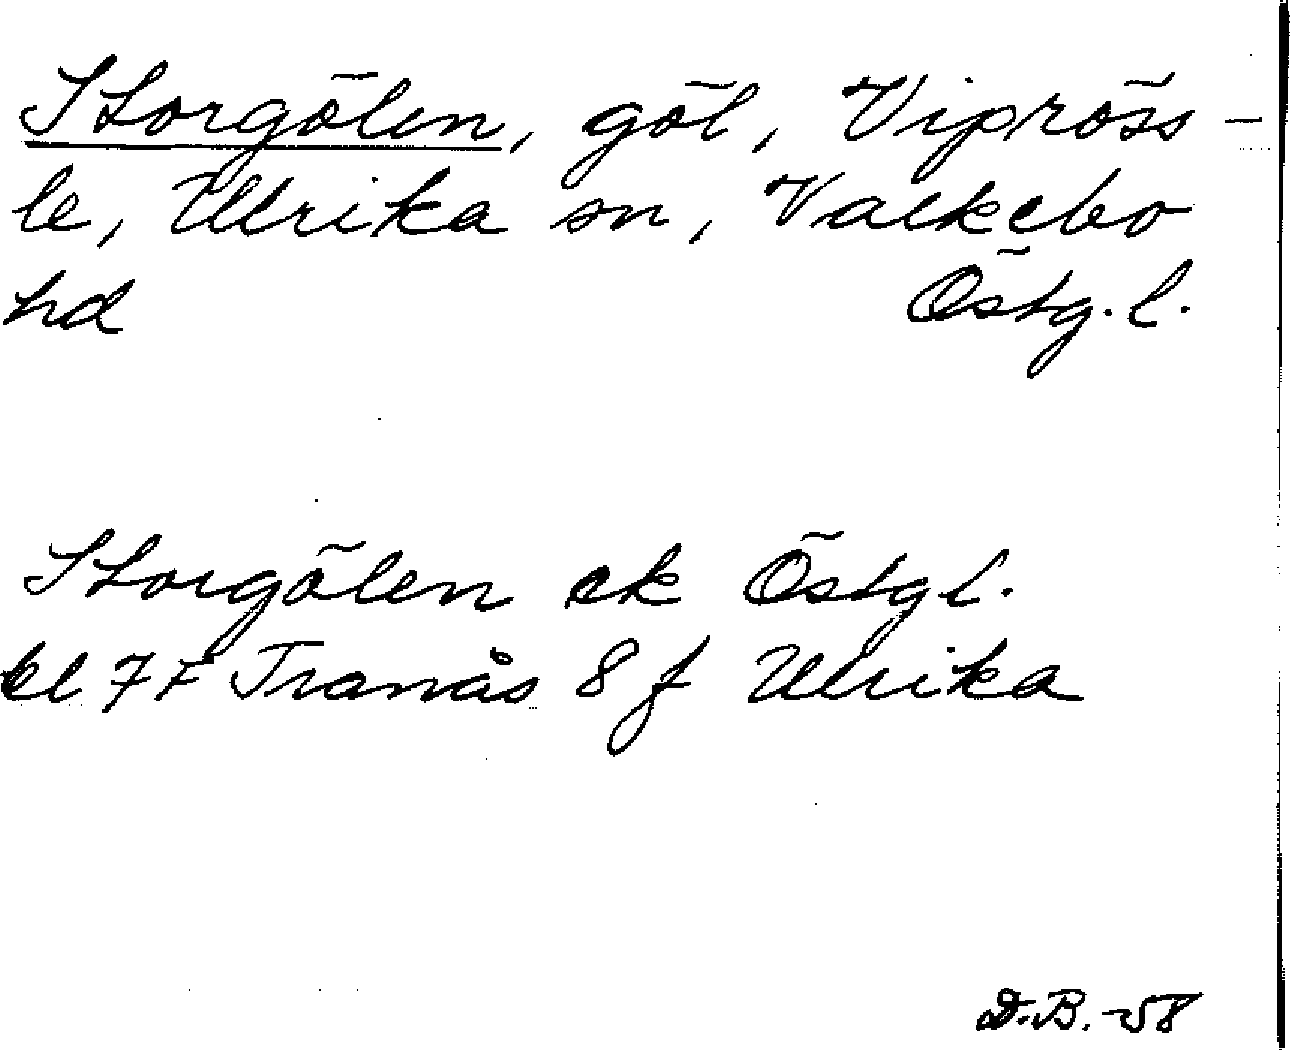 Storgölen, göl, Vipröss-
le, Ulrika sn, Valkebo
hd Östg. l.
Storgölen ek Östgl.
bl 7F Tranås 8f Ulrika
D.B. -58